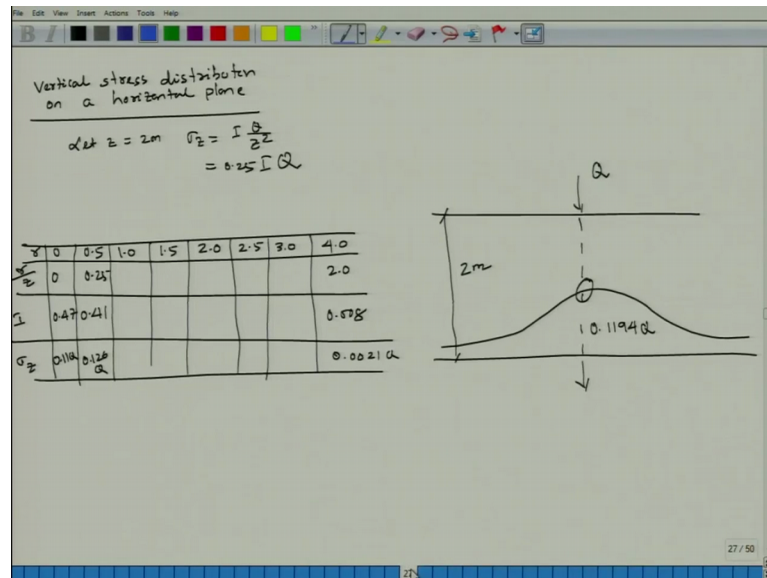 File Edit View Insert Actions Tools Help
B I
Vertical stress distributen
on a horizontal plane
Let z = 2m σz = I Q/z2
= 0.25 I Q
r 0 0.5 1.0 1.5 2.0 2.5 3.0 4.0
r/z 0 0.25 2.0
I 0.47 0.41 0.008
σz 0.11Q 0.126 Q 0.0021 Q
Q
2m
0.1194Q
27 / 50